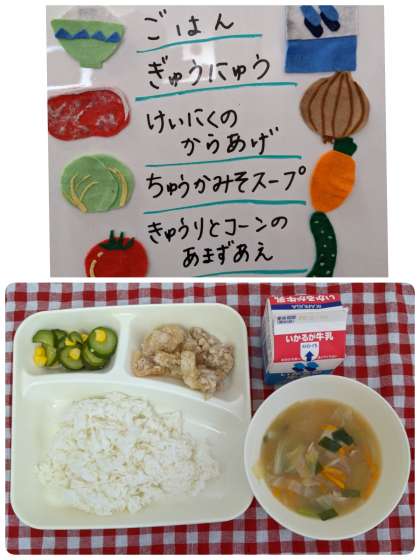 ごはん
ぎゅうにゅう
けいにくの
からあげ
ちゅうかみそスープ
きゅうりとコーンの
あまずあえ
IKARUGA
いかるが牛乳